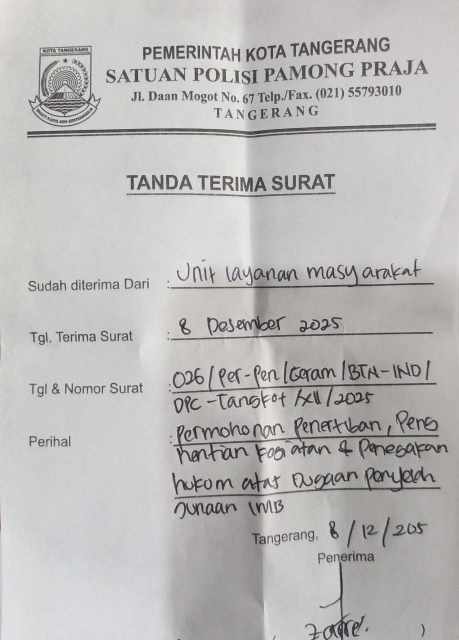 KOTA TANGERANG
PEMERINTAH KOTA TANGERANG
SATUAN POLISI PAMONG PRAJA
Jl. Daan Mogot No. 67 Telp./Fax. (021) 55793010
TANGERANG
TANDA TERIMA SURAT
Sudah diterima Dari : Unit layanan masyarakat
Tgl. Terima Surat : 8 Desember 2025
Tgl & Nomor Surat : 026/Per-Pen/Geram/BTN-IND/
DPC-Tangkot/XII/2025
Perihal : Permohonan Penertiban, Peng
hentian kegiatan & Penegakan
hukum atas Dugaan Penyalah
Gunaan IMB
Tangerang, 8/12/205
Penerima